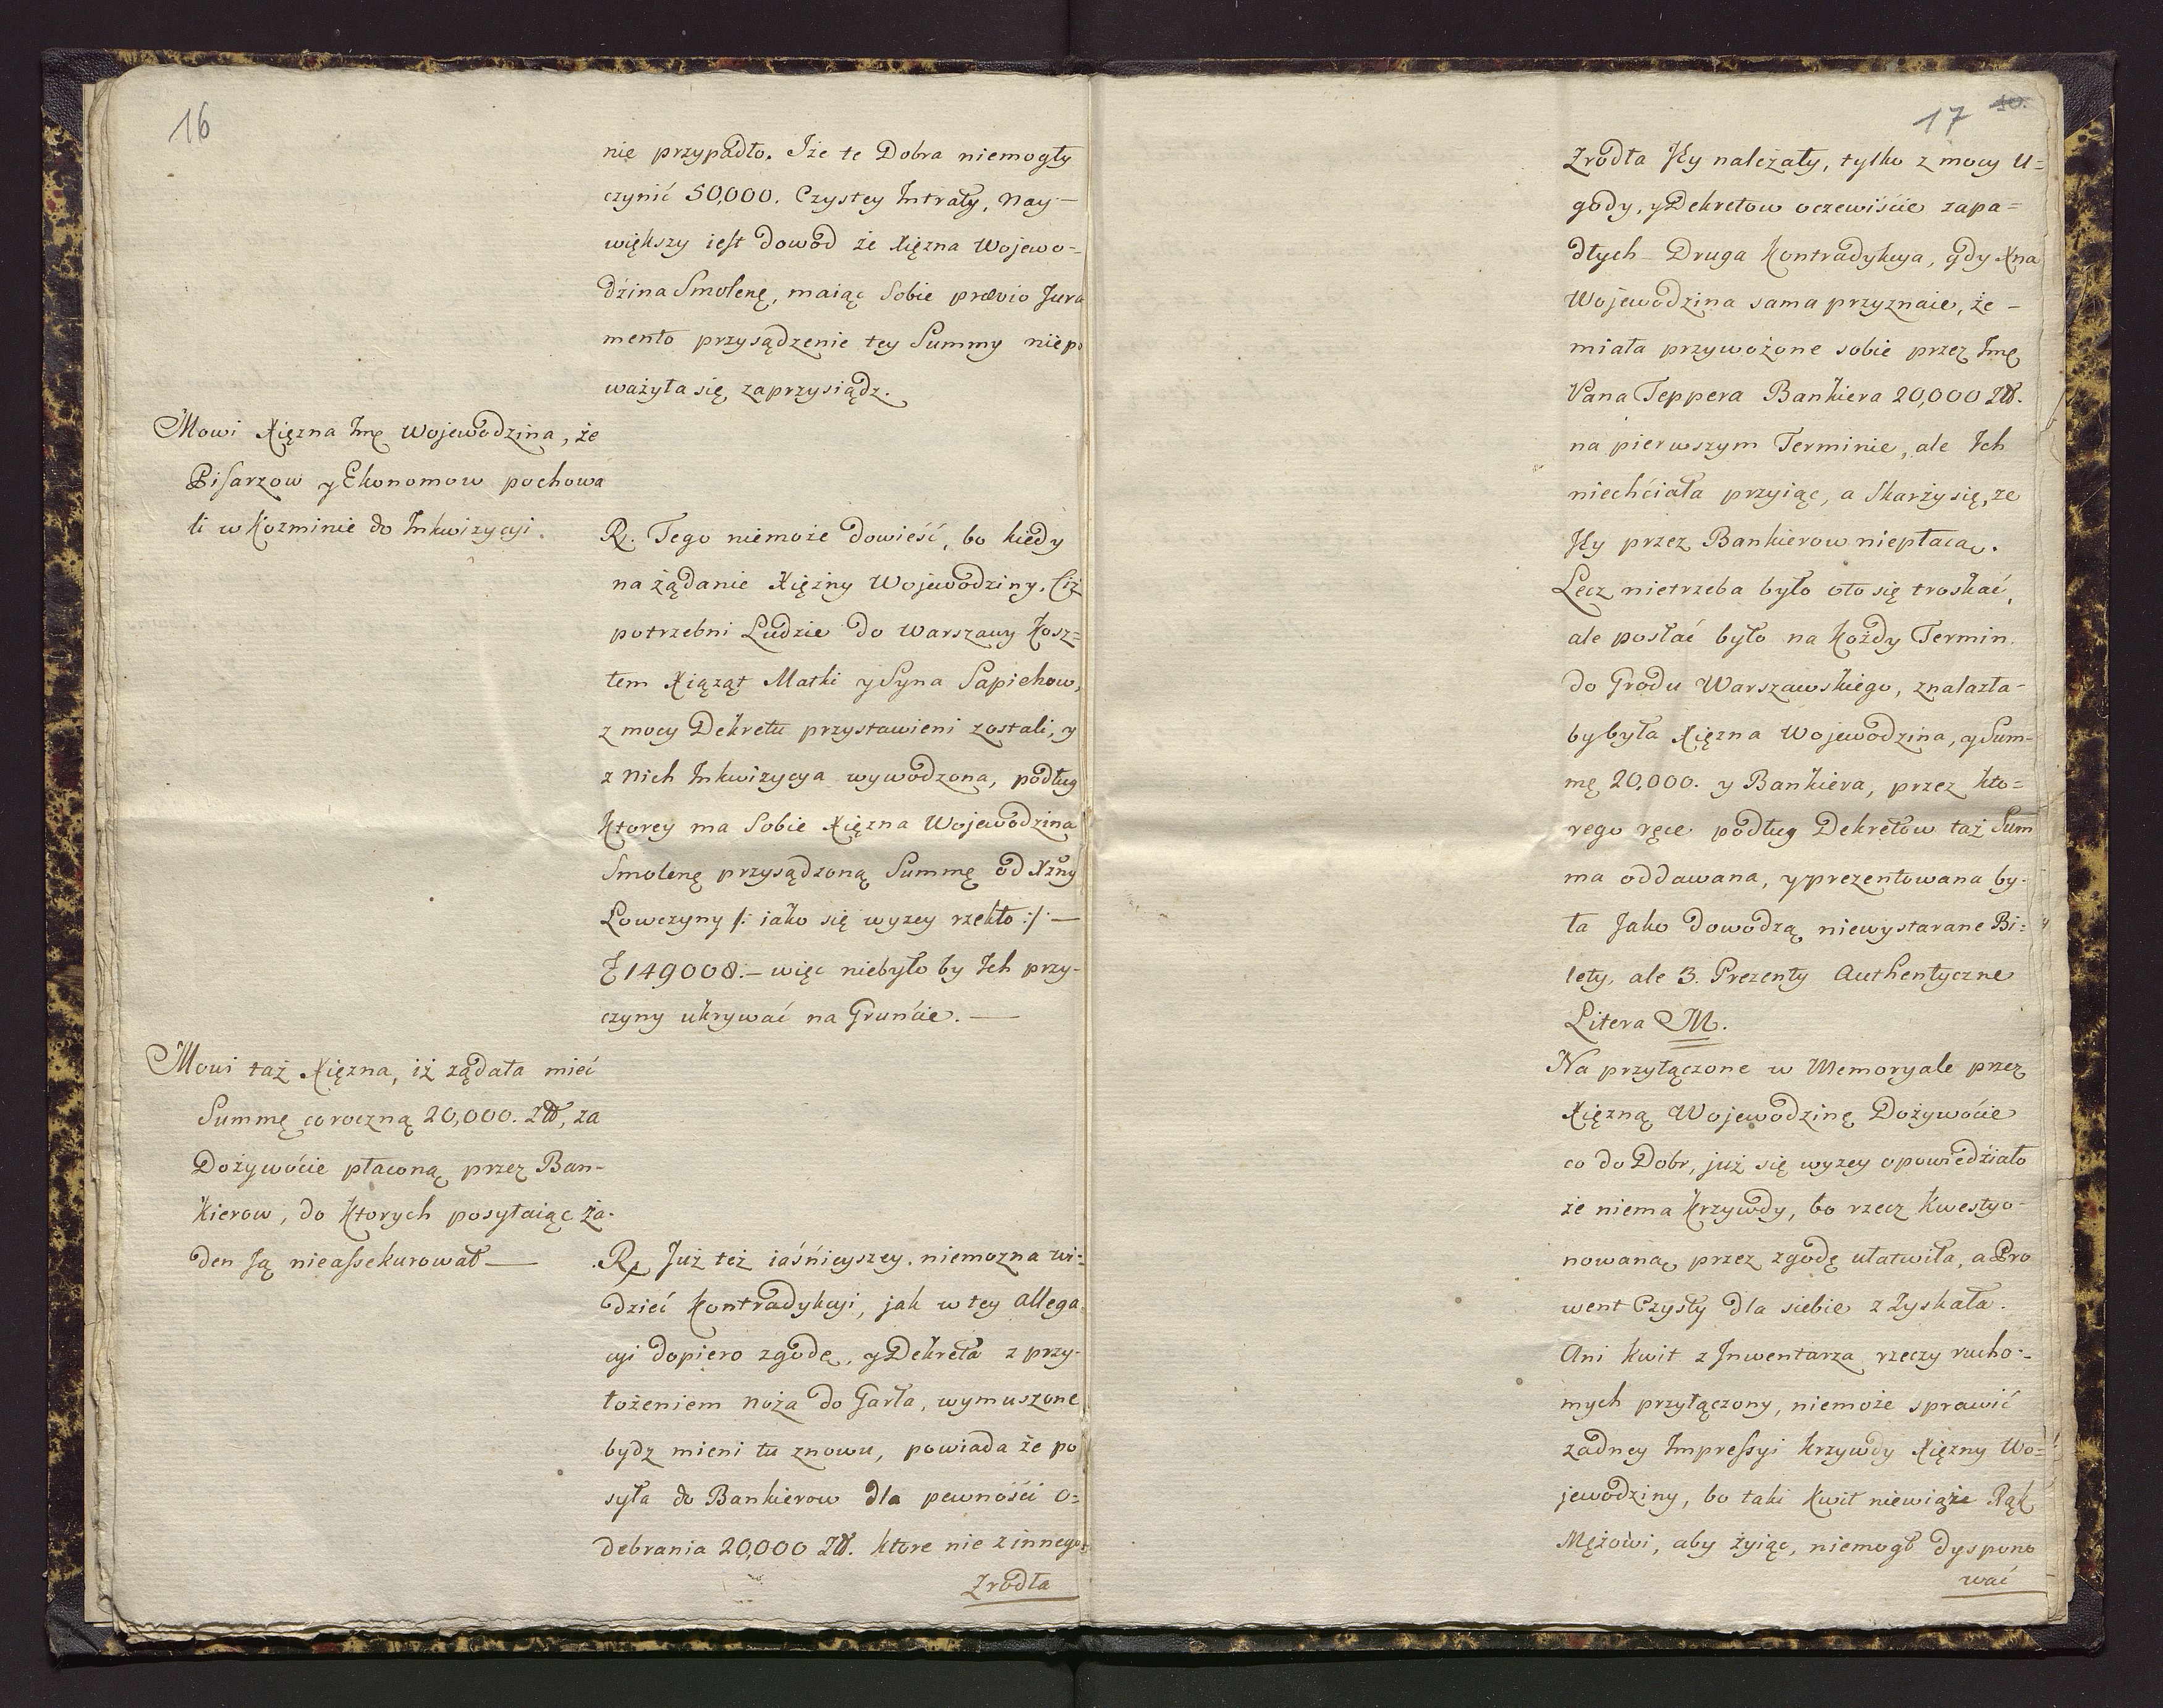 16
nie przypadło. Iże te Dobra niemogły
czynić 50,000. Czystey Intraty, Nay-
większy iest dowod że Xięzna Wojewo=
dzina Smolenę, maiąc Sobie prævio Jura
mento przysądzenie tey Summy niepo
ważyła się zaprzysiądz.
Mowi Xięzna Jmę Wojewodzina, że
Pisarzow y Ekonomow pochowa
li w Kozminie do Inkwizycyi.
R. Tego niemoże dowieść, bo kiedy
na żądanie Xiężny Wojewodziny, Ciż
potrzebni Ludzie do Warszawy Kosz=
tem Xiążąt Matki y Syna Sapiehow,
z mocy Dekretu przystawieni zostali, y
z Nich Inkwizycya wywodzona, podług
Ktorey ma Sobie Xięzna Wojewodzina
Smolenę przysądzoną Summę od Xżny
Łowczyny /: iako się wyzey rzekło :/ —
ƶ 149008.— więc niebyło by Ich przy-
czyny ukrywać na Gruncie. —
Mowi taż Xięzna, iż ządała mieć
Summę coroczną 20,000. Zł, za
Dożywocie płaconą przez Ban-
kierow, do Ktorych posyłaiąc ża-
den Ją nieassekurował —
R. Już też iaśnieyszey niemozna wi=
dzieć Kontradykcyi, jak w tey allega
cyi dopiero zgodę, y Dekreta z przy-
łożeniem noża do Garła, wymuszone
bydz mieni tu znowu, powiada że po
syła do Bankierow dla pewności o=
debrania 20,000 Zł. ktore nie z innego
Zrodła
17
10.
Zrodła Jey należały, tylko z mocy U=
gody, y Dekretow oczewiście zapa=
dłych - Druga Kontradykcya, gdy Xna
Wojewodzina sama przyznaie, że -
miała przywożone sobie przez Jmę
Pana Teppera Bankiera 20,000 Zł.
na pierwszym Terminie, ale Ich
niechciała przyiąc, a Skarży się, ze
Jey przez Bankierow niepłacą.
Lecz nietrzeba było oto się troskać,
ale posłać było na Kożdy Termin
do Grodu Warszawskiego, znalazła-
by była Xięzna Wojewodzina, y Sum=
mę 20,000. y Bankiera, przez kto=
rego ręce podług Dekretow taż Sum
ma oddawana, y prezentowana by-
ła Jako dowodzą niewystarane Bi=
lety, ale 3. Prezenty Authentyczne
Litera M.
Na przyłączone w Memoryale przez
Xięzną Wojewodzinę Dożywocie
co do Dobr, już się wyzey opowiedziało
że niema Krzywdy, bo rzecz Kwestyo-
nowaną, przez zgodę ułatwiła, a Pro
went Czysty dla siebie zzyskała.
Ani Kwit z Jnwentarza rzeczy rucho=
mych przyłączony, niemoże sprawić
żadney Impressyi Krzywdy Xięzny Wo=
jewodziny, bo taki Kwit niewiąże Rąk
Mężowi, aby żyiąc, niemogł dyspono
wać